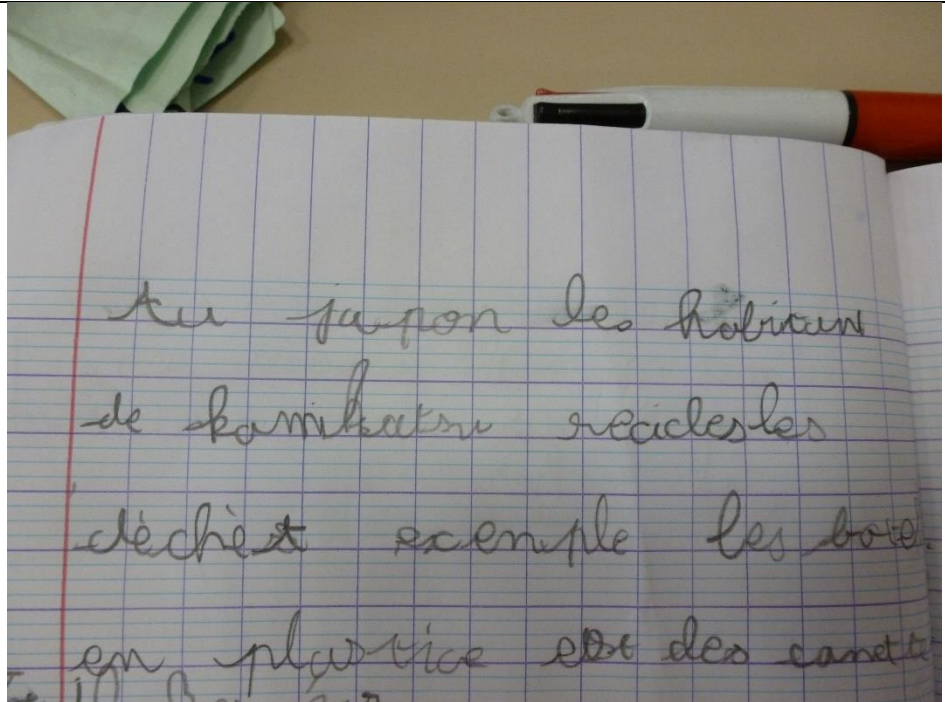 Au japon les habitan
de kamikatsu recicles les
déchèt exemple les botel
en plastice est des canette